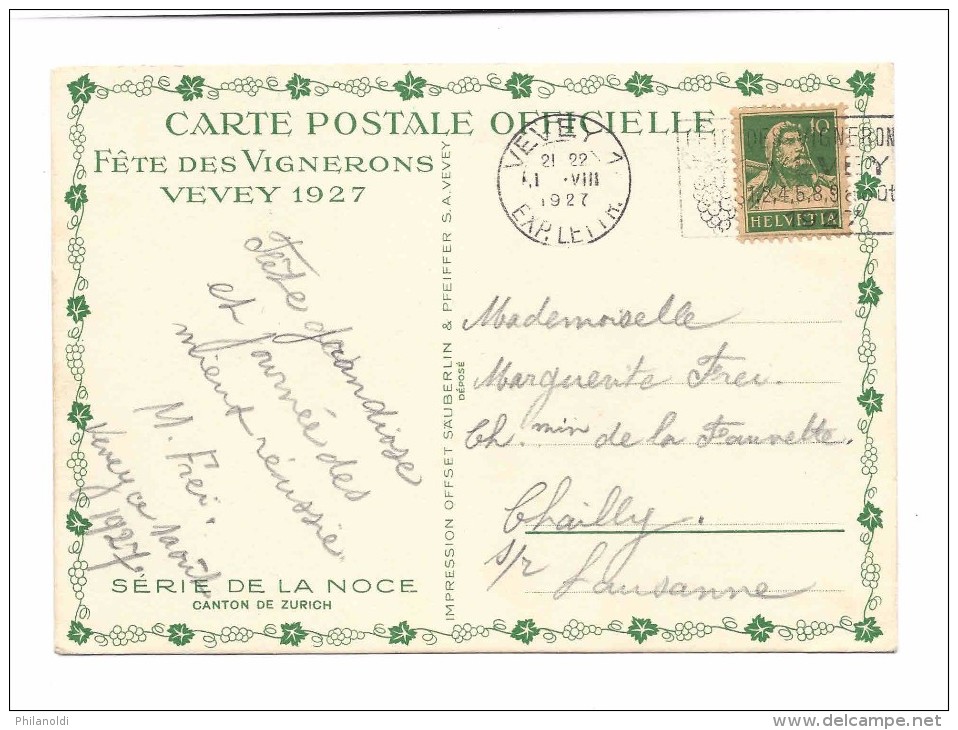 CARTE POSTALE OFFICIELLE
FÊTE DES VIGNERONS
VEVEY 1927
VEVEY 1
21 22
1. VIII
1927
EXP. LETTR.
VIGNERON
VEY
1,2,4,5,8,9 août
10
HELVETIA
Fête grandiose
et journée des
mieux réussie.
M. Frei.
Vevey ce 1 août
1927.
SÉRIE DE LA NOCE
CANTON DE ZURICH
IMPRESSION OFFSET SÄUBERLIN & PFEIFFER S.A. VEVEY
DÉPOSÉ
Mademoiselle
Marguerite Frei.
Ch.min de la Fauvette.
Chailly.
s/r Lausanne
Philanoldi
www.delcampe.net